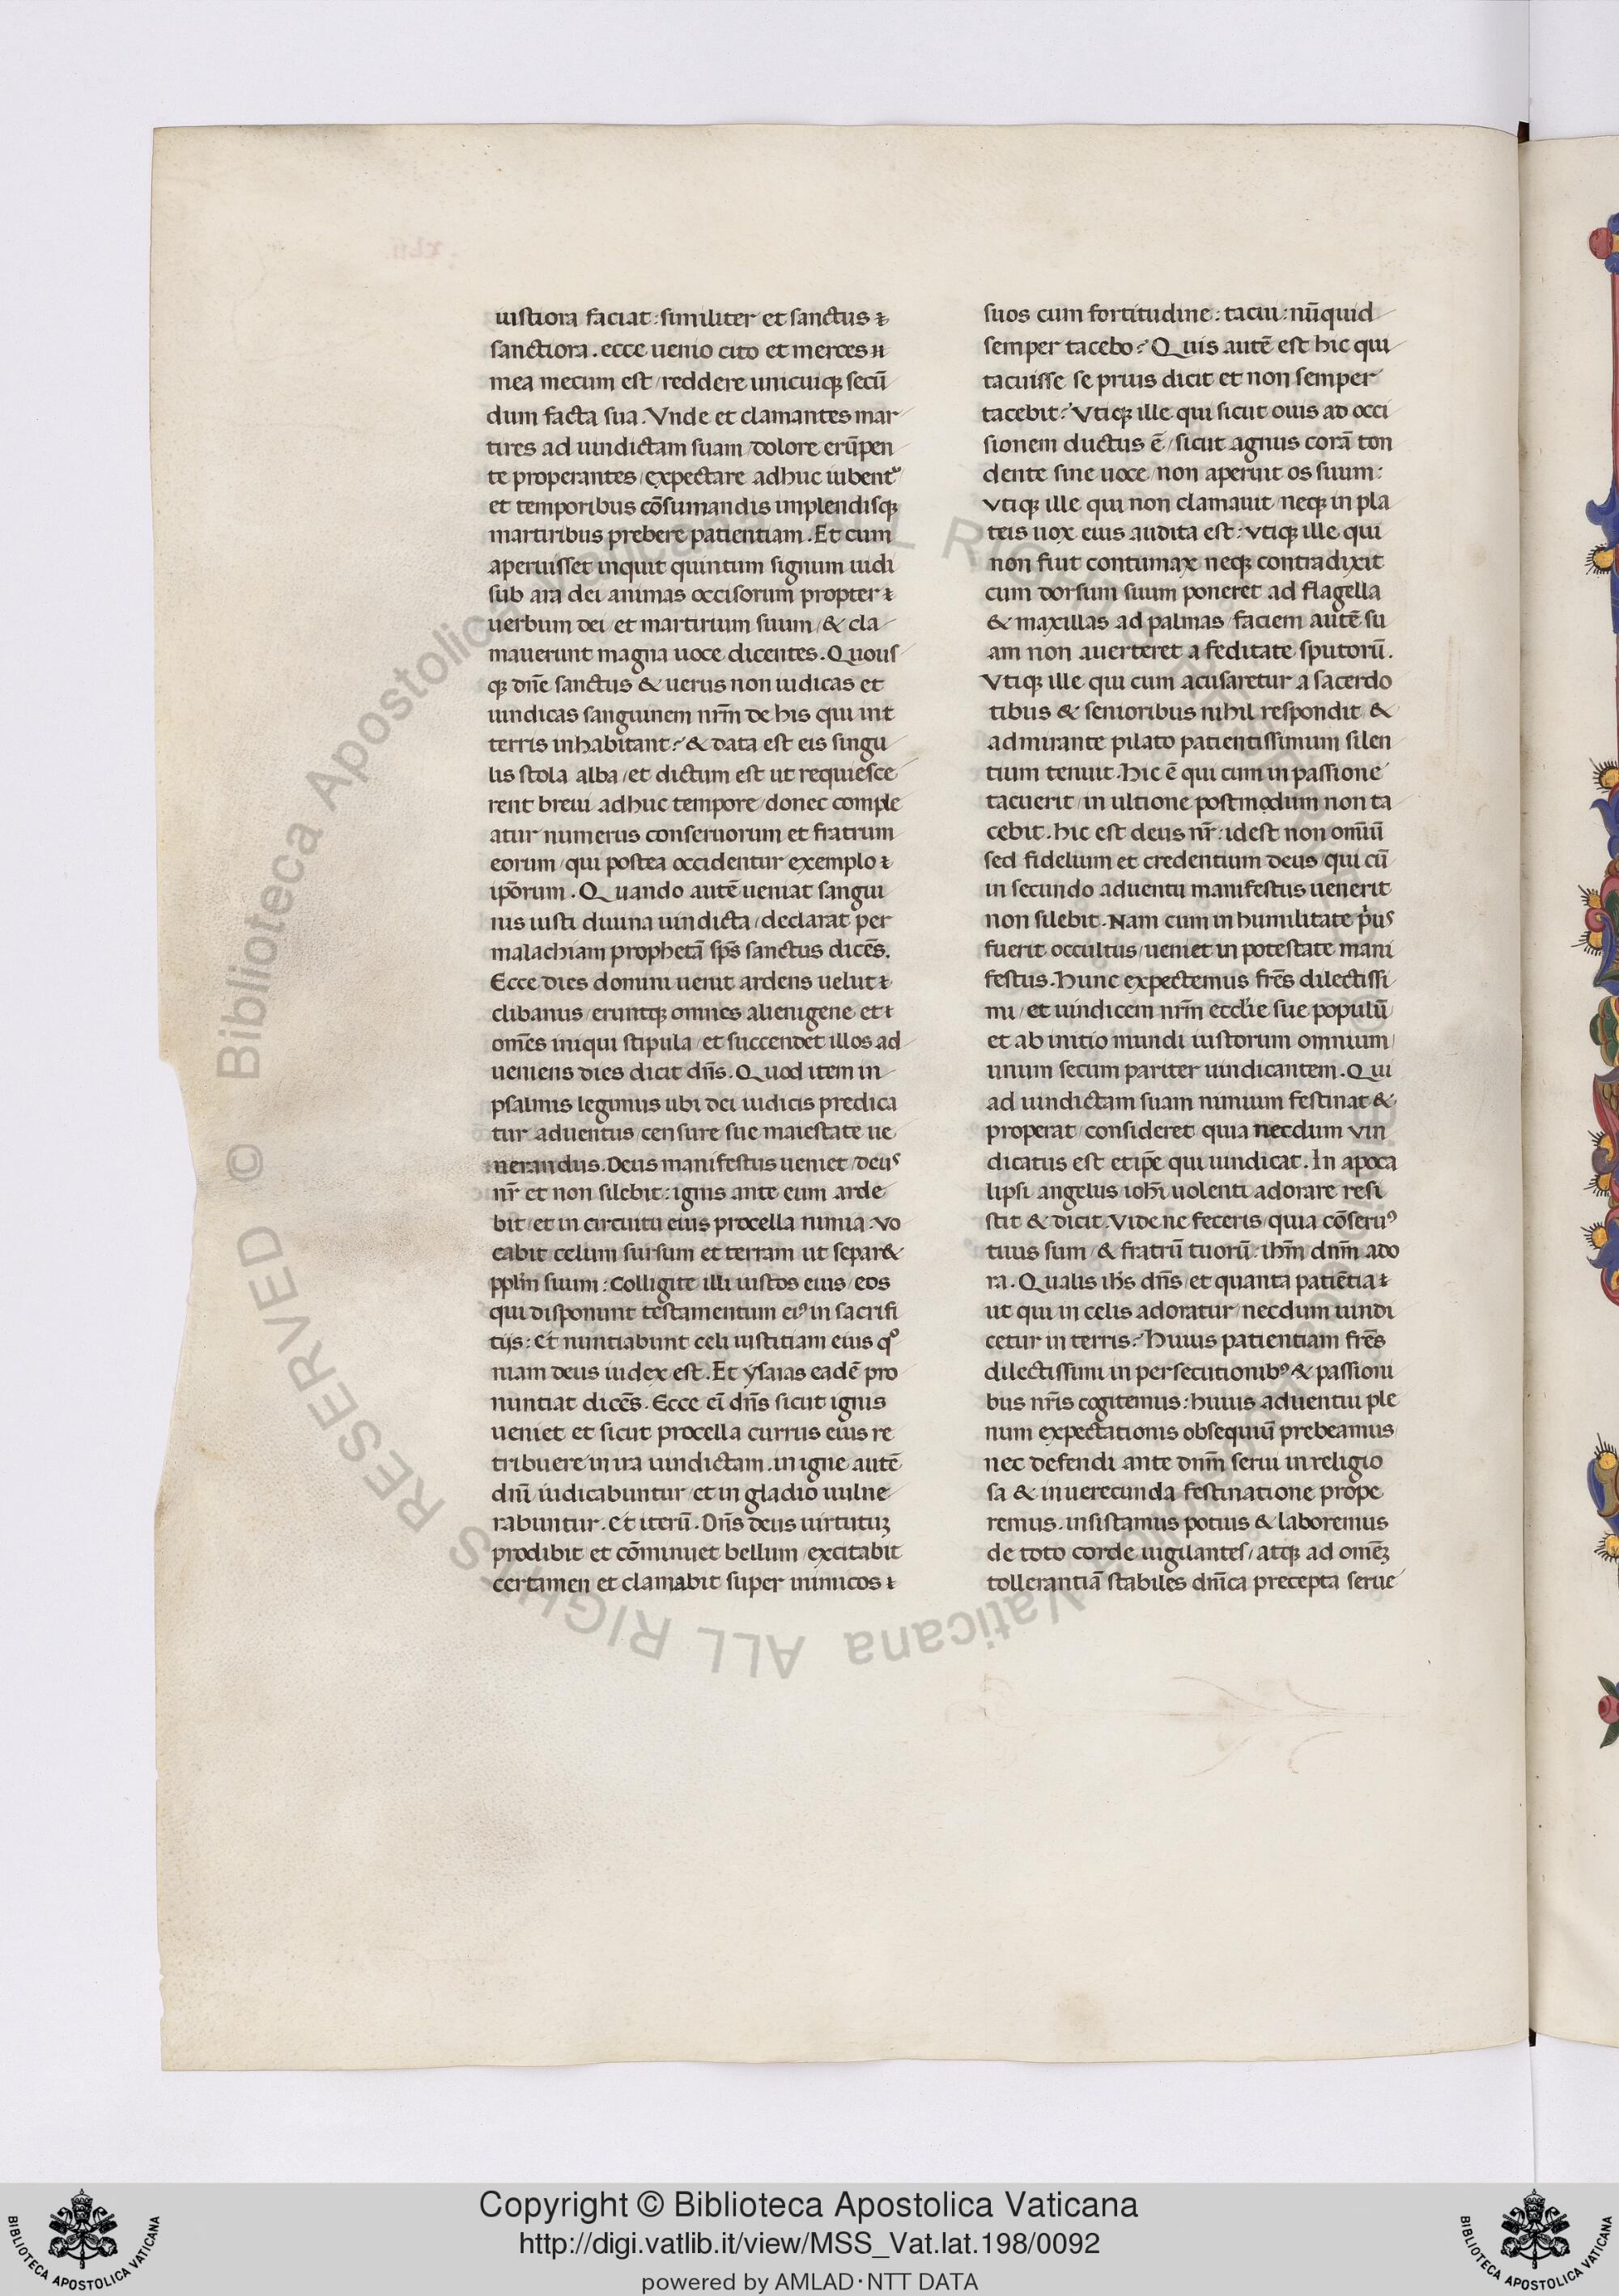 iustiora faciat : similiter et sanctus
sanctiora . ecce uenio cito et merces
mea mecum est / reddere unicuiqꝫ secū
dum facta sua . Vnde et clamantes mar
tires ad uindictam suam / dolore erūpen
te properantes / expectare adhuc iubentᷣ
et temporibus cōsumandis implendisqꝫ
martiribus prebere patientiam . Et cum
aperuisset inquit quintum signum uidi
sub ara dei animas occisorum propter
uerbum dei / et martirium suum / & cla
mauerunt magna uoce dicentes . Quous
qꝫ dn̄e sanctus & uerus non iudicas et
uindicas sanguinem nr̄m de his qui int
terris inhabitant ? & data est eis singu
lis stola alba / et dictum est ut requiesce
rent breui adhuc tempore / donec comple
atur numerus conseruorum et fratrum
eorum / qui postea occidentur exemplo
ip̄orum . Quando autē ueniat sangui
nis iusti diuina uindicta / declarat per
malachiam prophetā sp̄s sanctus dicēs .
Ecce dies domini uenit ardens uelut
clibanus / eruntqꝫ omnes alienigene et
om̄es iniqui stipula / et succendet illos ad
ueniens dies dicit dn̄s . Quod item in
psalmis legimus ubi dei iudicis predica
tur aduentus / censure sue maiestate ue
nerandus . Deus manifestus ueniet / deus
nr̄ et non silebit : ignis ante eum arde
bit / et in circuitu eius procella nimia . vo
cabit celum sursum et terram ut separ&
ppl̄m suum : Colligite illi iustos eius / eos
qui disponunt testamentum eiꝰ in sacrifi
tijs : Et nuntiabunt celi iustitiam eius qͦ
niam deus iudex est . Et ysaias eadē pro
nuntiat dicēs . Ecce ei̅ dn̄s sicut ignis
ueniet et sicut procella currus eius re
tribuere in ira uindictam . in igne autē
dnī iudicabuntur / et in gladio uulne
rabuntur . Et iterū . Dn̄s deus uirtutuꝫ
prodibit et cōminuet bellum / excitabit
certamen et clamabit super inimicos
suos cum fortitudine : tacui : nūquid
semper tacebo ? Quis autē est hic qui
tacuisse se prius dicit et non semper
tacebit ? Vtiqꝫ ille qui sicut ouis ad occi
sionem ductus ē / sicut agnus corā ton
dente sine uoce / non aperuit os suum :
vtiqꝫ ille qui non clamauit / neqꝫ in pla
teis uox eius audita est : vtiqꝫ ille qui
non fuit contumax neqꝫ contradixit
cum dorsum suum poneret ad flagella
& maxillas ad palmas / faciem autē su
am non auerteret a feditate sputorū .
Vtiqꝫ ille qui cum acusaretur a sacerdo
tibus & senioribus nihil respondit &
admirante pilato patientissimum silen
tium tenuit . hic ē qui cum in passione
tacuerit / in ultione postmodum non ta
cebit . hic est deus nr̄ : idest non omīū
sed fidelium et credentium deus / qui cū
in secundo aduentu manifestus uenerit
non silebit . Nam cum in humilitate pͥus
fuerit occultus / ueniet in potestate mani
festus . Hunc expectemus fr̄es dilectissi
mi / et uindicem nr̄m eccl̄ie sue populū
et ab initio mundi iustorum omnium
unum secum pariter uindicantem . Qui
ad uindictam suam nimium festinat &
properat / consideret quia necdum vin
dicatus est et ip̄e qui uindicat . In apoca
lipsi angelus ioh̄i uolenti adorare resi
stit & dicit . Vide ne feceris / quia cōseruꝰ
tuus sum / & fratrū tuorū : ih̄m dn̄m ado
ra . Qualis ih̄s dn̄s / et quanta patiētia
ut qui in celis adoratur / necdum uindi
cetur in terris ? huius patientiam fr̄es
dilectissimi in persecutionibꝰ & passioni
bus nr̄is cogitemus : huius aduentui ple
num expectationis obsequiū prebeamus
nec defendi ante dn̄m serui in religio
sa & inuerecunda festinatione prope
remus . insistamus potius & laboremus
de toto corde uigilantes / atqꝫ ad om̄eꝫ
tollerantiā stabiles dn̄ica precepta serue
Copyright © Biblioteca Apostolica Vaticana
http://digi.vatlib.it/view/MSS_Vat.lat.198/0092
powered by AMLAD·NTT DATA
BIBLIOTECA APOSTOLICA VATICANA
BIBLIOTECA APOSTOLICA VATICANA
© Biblioteca Apostolica Vaticana ALL RIGHTS RESERVED